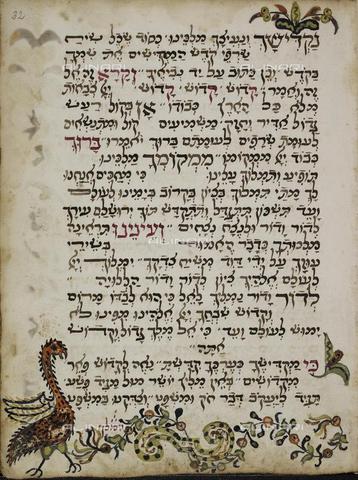 32
נקדישך ונעריצך מלכינו כסוד שכל שיח
שרפי קדש המקדישים את שמך
בקדש וכן כתוב על יד נביאך וקרא זה אל
זה ואמר קדוש קדוש קדוש ייי צבאות
מלא כל הארץ כבודו אז בקול רעש
גדול אדיר וחזק משמיעים קול ומתנשאים
לעומת שרפים לעומתם ברוך יאמרו ברוך
כבוד ייי ממקומו ממקומך מלכינו
תופיע ותמלוך עלינו כי מחכים אנחנו
לך מתי תמלוך בציון בקרוב בימינו לעולם
ועד תשכון תתגדל ותתקדש תוך ירושלים עירך
לדור ודור ולנצח נצחים ועינינו תראינה
מלכותך כדבר האמור בשירי
עוזך על ידי דוד משיח צדקך ימלוך ייי
לעולם אלהיך ציון לדור ודור הללויה
לדור ודור נמליך לאל כי הוא לבדו מרום
וקדוש ושבחך ייי אלהינו מפינו לא
ימוש לעולם ועד כי אל מלך גדול וקדוש
אתה
כי מקדישיך כערכך קדשת נאה לקדוש פאר
מקדושים באין מליץ יושר מול מגיד פשע
תגיד ליעקב דבר חק ומשפט וצדקנו במשפט